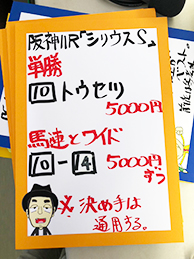 阪神11R「シリウスS」
単勝
10 トウセツ
5000円
馬連とワイド
10-4 5000円
ずつ
※決め手は
通用する。